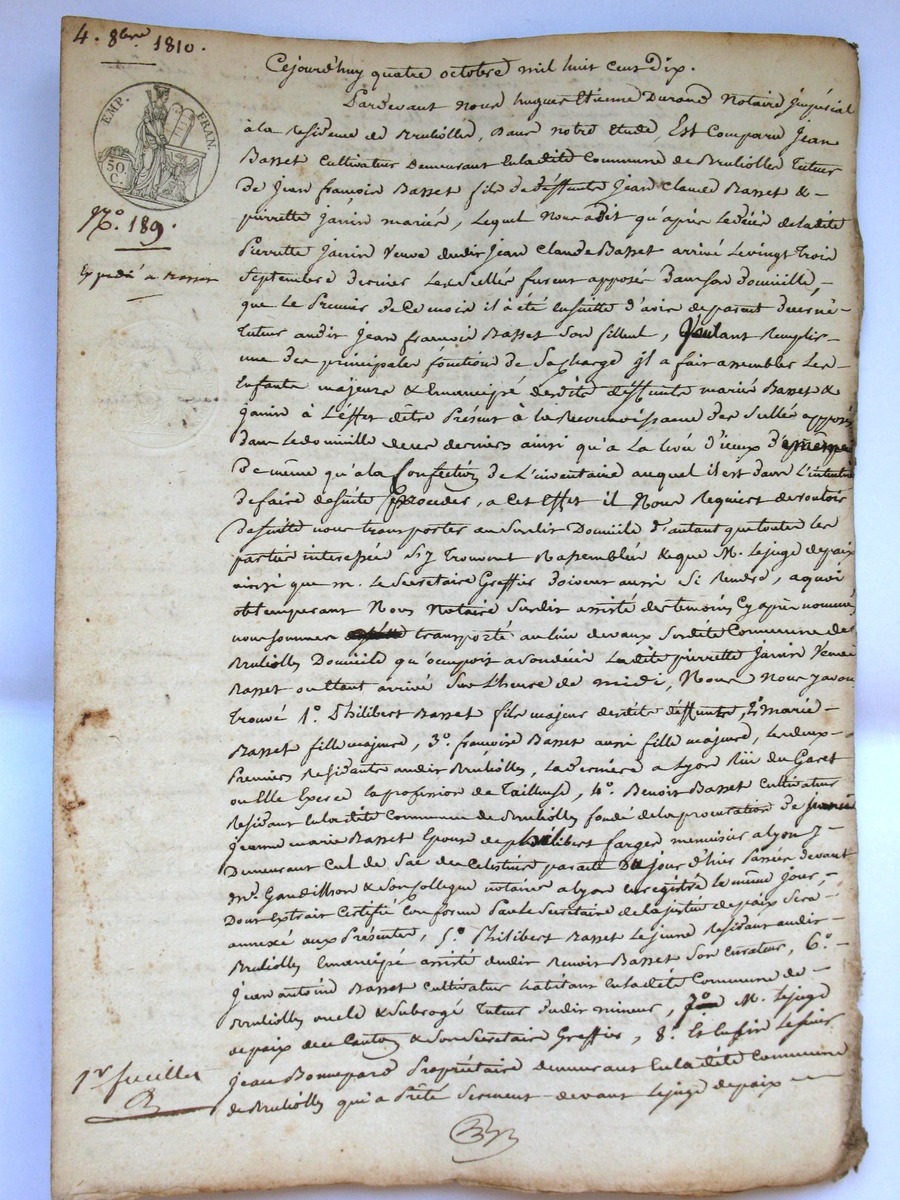 4. 8bre 1810.
EMP. FRAN.
50 C.
N.o 189.
Expedié a
Cejourd'huy quatre octobre mil huit cent Dix.
Pardevant nous hugues Etienne Durand Notaire Impérial
à la residence de Brullolles, Dans notre Etude, Est Comparu Jean
Basset Cultivateur Demeurant En ladite Commune de Brullolles tuteur
de Jean françois Basset fils de deffunts Jean Claude Basset &
pierrette Janin mariés, Lequel Nous a dit qu'après le décès de ladite
Pierrette Janin Veuve dudit Jean Claude Basset arrivé le vingt trois
Septembre dernier les scellés furent apposés dans son domicille,
que le Premier de Ce mois il a été Ensuitte d'avis de parent decerné
tuteur audit Jean francois Basset son filleul, Voulant Remplir
une des principales fonctions de Sa charge il a fait assembler les
Enfants majeurs & Emancipé desdits deffunts mariés Basset &
janin à L'effet d'être Présent à la Reconnoissance des Scellés apposés
dans le domicille de ces derniers ainsi qu'a La levée d'iceux
De même qu'à la Confection de L'inventaire auquel il est dans L'intention
de faire de suite procéder, a Cet Effet il Nous Requiert de vouloir
de suite nous transporter au Susdit Domicile d'autant que toutes les
parties interessées s'y trouvent Rassemblées & que M. Le juge de paix
ainsi que m. Le Secretaire Greffier doivent aussi Si Rendre, a quoi
obtemperant Nous Notaire Susdit assisté des temoins Cy après nommés
nous sommes transporté au lieu de vaux Susdite Commune de
Brullolles Domicile qu'occupoit a son décès Ladite pierrette Janin Veuve
Basset ou Etant arrivé sur L'heure de midi, Nous Nous y avons
Trouvé 1.o Philibert Basset fils majeur desdits deffunts, 2.o Marie
Basset fille majeure, 3.o françoise Basset aussi fille majeure, les deux
Premiers Residants audit Brullolles, La dernière a Lyon Rue du Garet
ou Elle Exerce la profession de Tailleuse, 4.o Benoit Basset Cultivateur
Residant En ladite Commune de Brullolles fondé de la procuration de
Jeanne marie Basset Epouse de philibert farges menuisier a Lyon y
Demeurant Cul de Sac des Celestins par acte Du jour d'hier Passée devant
Mr. Gaudillon & Son Collegue notaires a Lyon Enregistrée le même Jour,
Dont Extrait Certifié Conforme Par le Secretaire de la justice de paix Sera
annexé aux Présentes, 5.o Philibert Basset Le jeune Residant audit
Brullolles Emancipé assisté dudit Benoit Basset Son Curateur, 6.o
Jean antoine Basset Cultivateur habitant En ladite Commune de
Brullolles oncle & Subrogé tuteur dudit mineur, 7.o M. Le juge
de paix du Canton & Son Secretaire Greffier, 8.o Et Enfin Le sieur
Jean Bonnepard Propriétaire demeurant En ladite Commune
de Brullolles qui a Prêté Serment devant Le juge de paix
1r feuillet